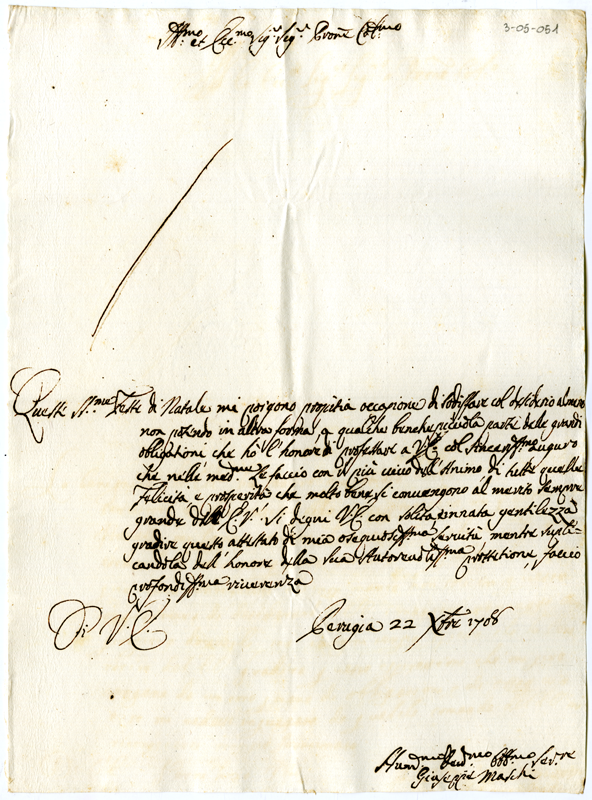 Ill.mo et Ecc.mo Sig.r Sig.r Prone Col.mo
3-05-051
Queste SS.me Feste di Natale mi porgono propitia occasione di sodisfare col desiderio almeno
non potendo in altra forma, a qualche benche piccola parte delle grandi
obligationi che hò l'honore di professare a V.E. col sinceriss.mo augurio
che nelle med.me Le faccio con il più vivo dell'Animo di tutte quelle
felicità e prosperità che molto bene si convengono al merito sempre
grande dell'E.V. Si degni V.E. con solita innata gentilezza
gradire questo attestato di mia ossequiosissima servitù mentre supli-
candola dell'honore della sua Autorevoliss.ma protettione, faccio
profondiss.ma riverenza
Di V.E.
Perugia 22 Xbre 1706
Hum.mo Dev.mo Obb.mo Ser.re
Giuseppe Maschi